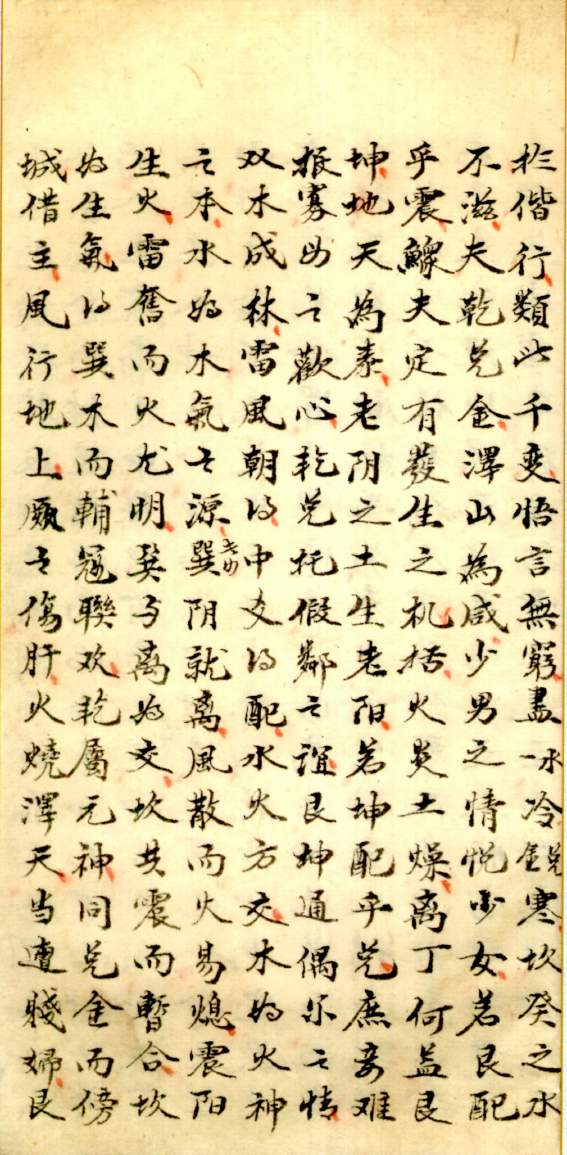 扵偕行類此千变悟言無窮盡一水冷兌金寒坎癸之水
不滋夫乾兌金澤山為咸少男之情悅少女若艮配
乎震鰥夫定有發生之机括火炎土燥离丁何益艮
坤地天為泰老阴之土生老阳若坤配乎兌庶妾难
投寡母之歡心乾兌托假鄰之誼艮坤通偶尔之情
双木成林雷風朝得中爻得配水火方交木为火神
之本水为木氣之源巽阴就离風散而火易熄震阳
生火雷奮而火尤明巽与离为交坎共震而暫合坎
为生氣得巽木而輔寇聯欢乾屬元神同兌金而傍
城借主風行地上厥之傷肝火燒澤天当遭賤婦艮